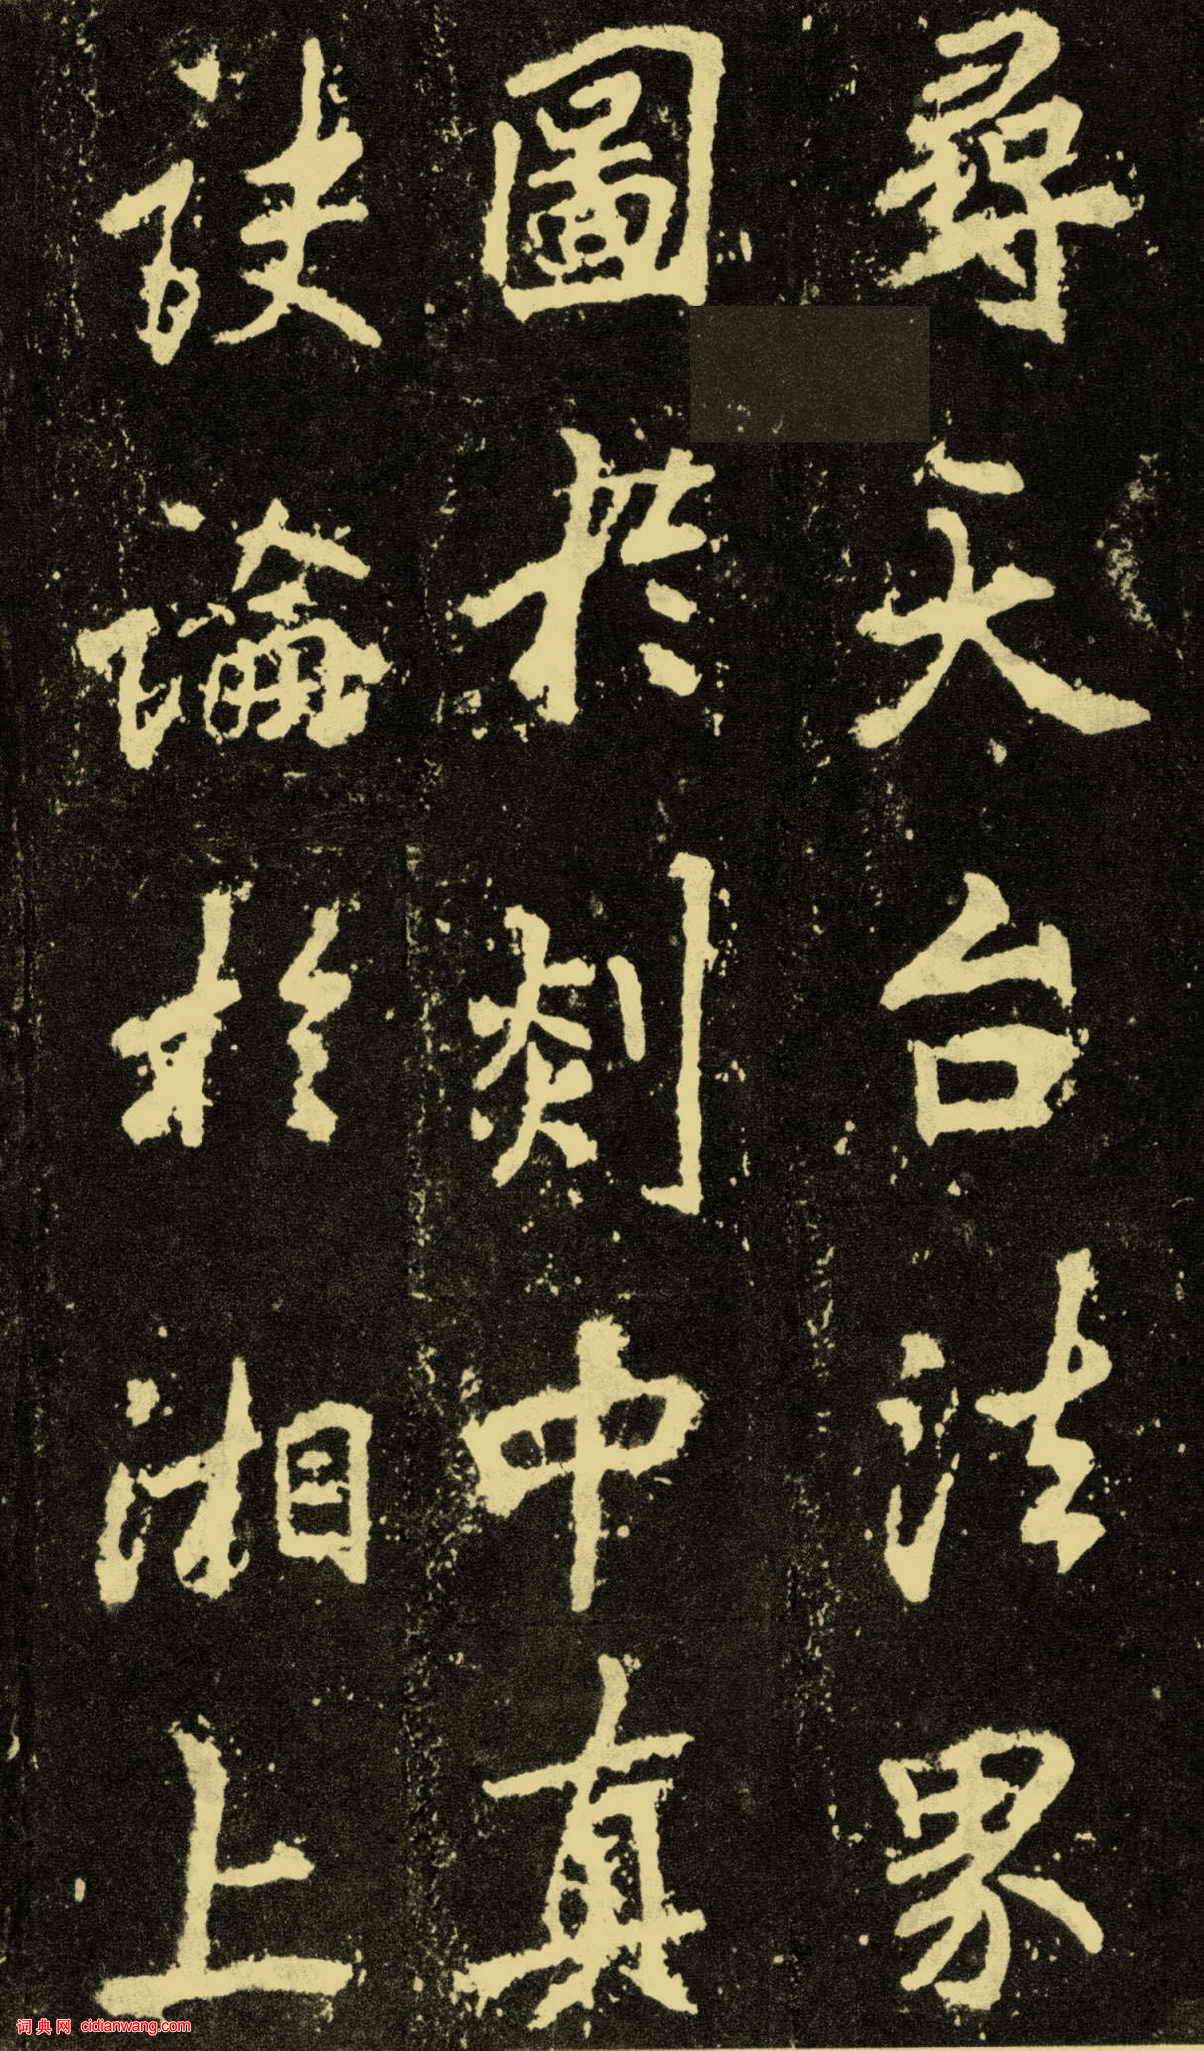 尋天台法界
圖於剡中真
訣論於湘上
词典网 cidianwang.com